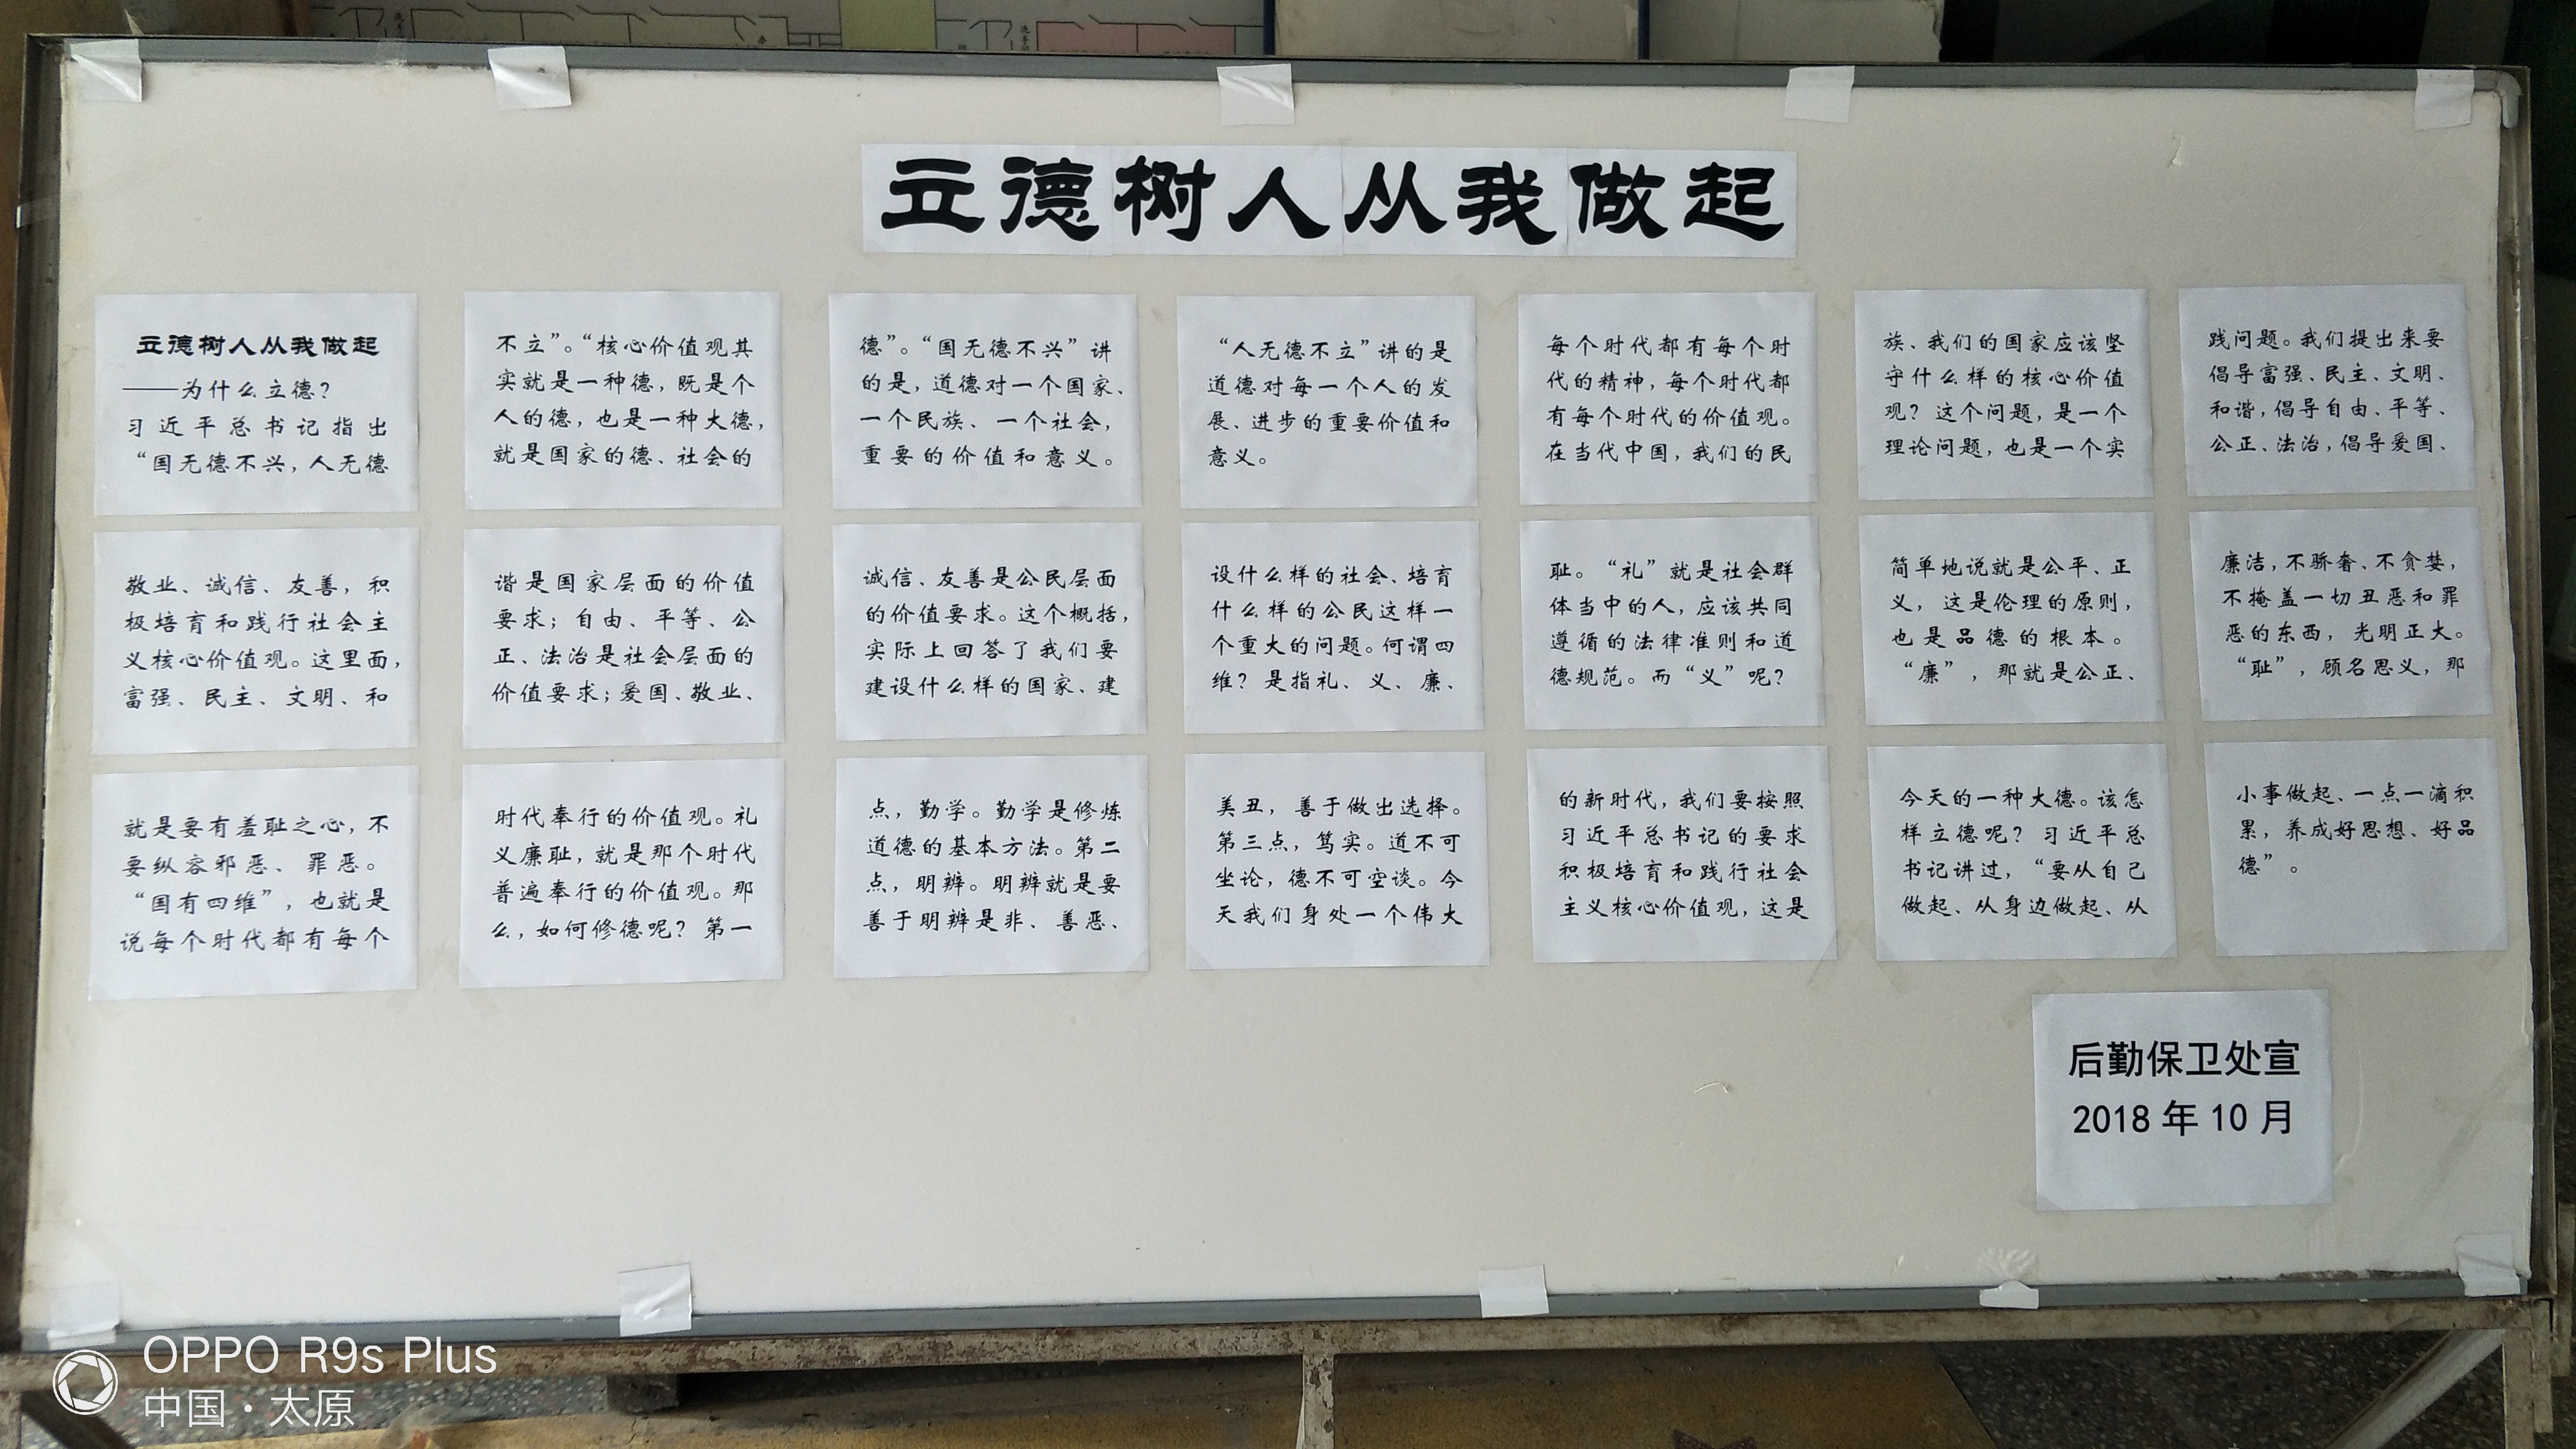 立德树人从我做起
立德树人从我做起
——为什么立德?
习近平总书记指出
“国无德不兴,人无德
不立”。“核心价值观其
实就是一种德,既是个
人的德,也是一种大德,
就是国家的德、社会的
德”。“国无德不兴”讲
的是,道德对一个国家、
一个民族、一个社会,
重要的价值和意义。
“人无德不立”讲的是
道德对每一个人的发
展、进步的重要价值和
意义。
每个时代都有每个时
代的精神,每个时代都
有每个时代的价值观。
在当代中国,我们的民
族、我们的国家应该坚
守什么样的核心价值
观?这个问题,是一个
理论问题,也是一个实
践问题。我们提出来要
倡导富强、民主、文明、
和谐,倡导自由、平等、
公正、法治,倡导爱国、
敬业、诚信、友善,积
极培育和践行社会主
义核心价值观。这里面,
富强、民主、文明、和
谐是国家层面的价值
要求;自由、平等、公
正、法治是社会层面的
价值要求;爱国、敬业、
诚信、友善是公民层面
的价值要求。这个概括,
实际上回答了我们要
建设什么样的国家、建
设什么样的社会、培育
什么样的公民这样一
个重大的问题。何谓四
维?是指礼、义、廉、
耻。“礼”就是社会群
体当中的人,应该共同
遵循的法律准则和道
德规范。而“义”呢?
简单地说就是公平、正
义,这是伦理的原则,
也是品德的根本。
“廉”,那就是公正、
廉洁,不骄奢、不贪婪,
不掩盖一切丑恶和罪
恶的东西,光明正大。
“耻”,顾名思义,那
就是要有羞耻之心,不
要纵容邪恶、罪恶。
“国有四维”,也就是
说每个时代都有每个
时代奉行的价值观。礼
义廉耻,就是那个时代
普遍奉行的价值观。那
么,如何修德呢?第一
点,勤学。勤学是修炼
道德的基本方法。第二
点,明辨。明辨就是要
善于明辨是非、善恶、
美丑,善于做出选择。
第三点,笃实。道不可
坐论,德不可空谈。今
天我们身处一个伟大
的新时代,我们要按照
习近平总书记的要求
积极培育和践行社会
主义核心价值观,这是
今天的一种大德。该怎
样立德呢?习近平总
书记讲过,“要从自己
做起、从身边做起、从
小事做起、一点一滴积
累,养成好思想、好品
德”。
后勤保卫处宣
2018年10月
OPPO R9s Plus
中国·太原